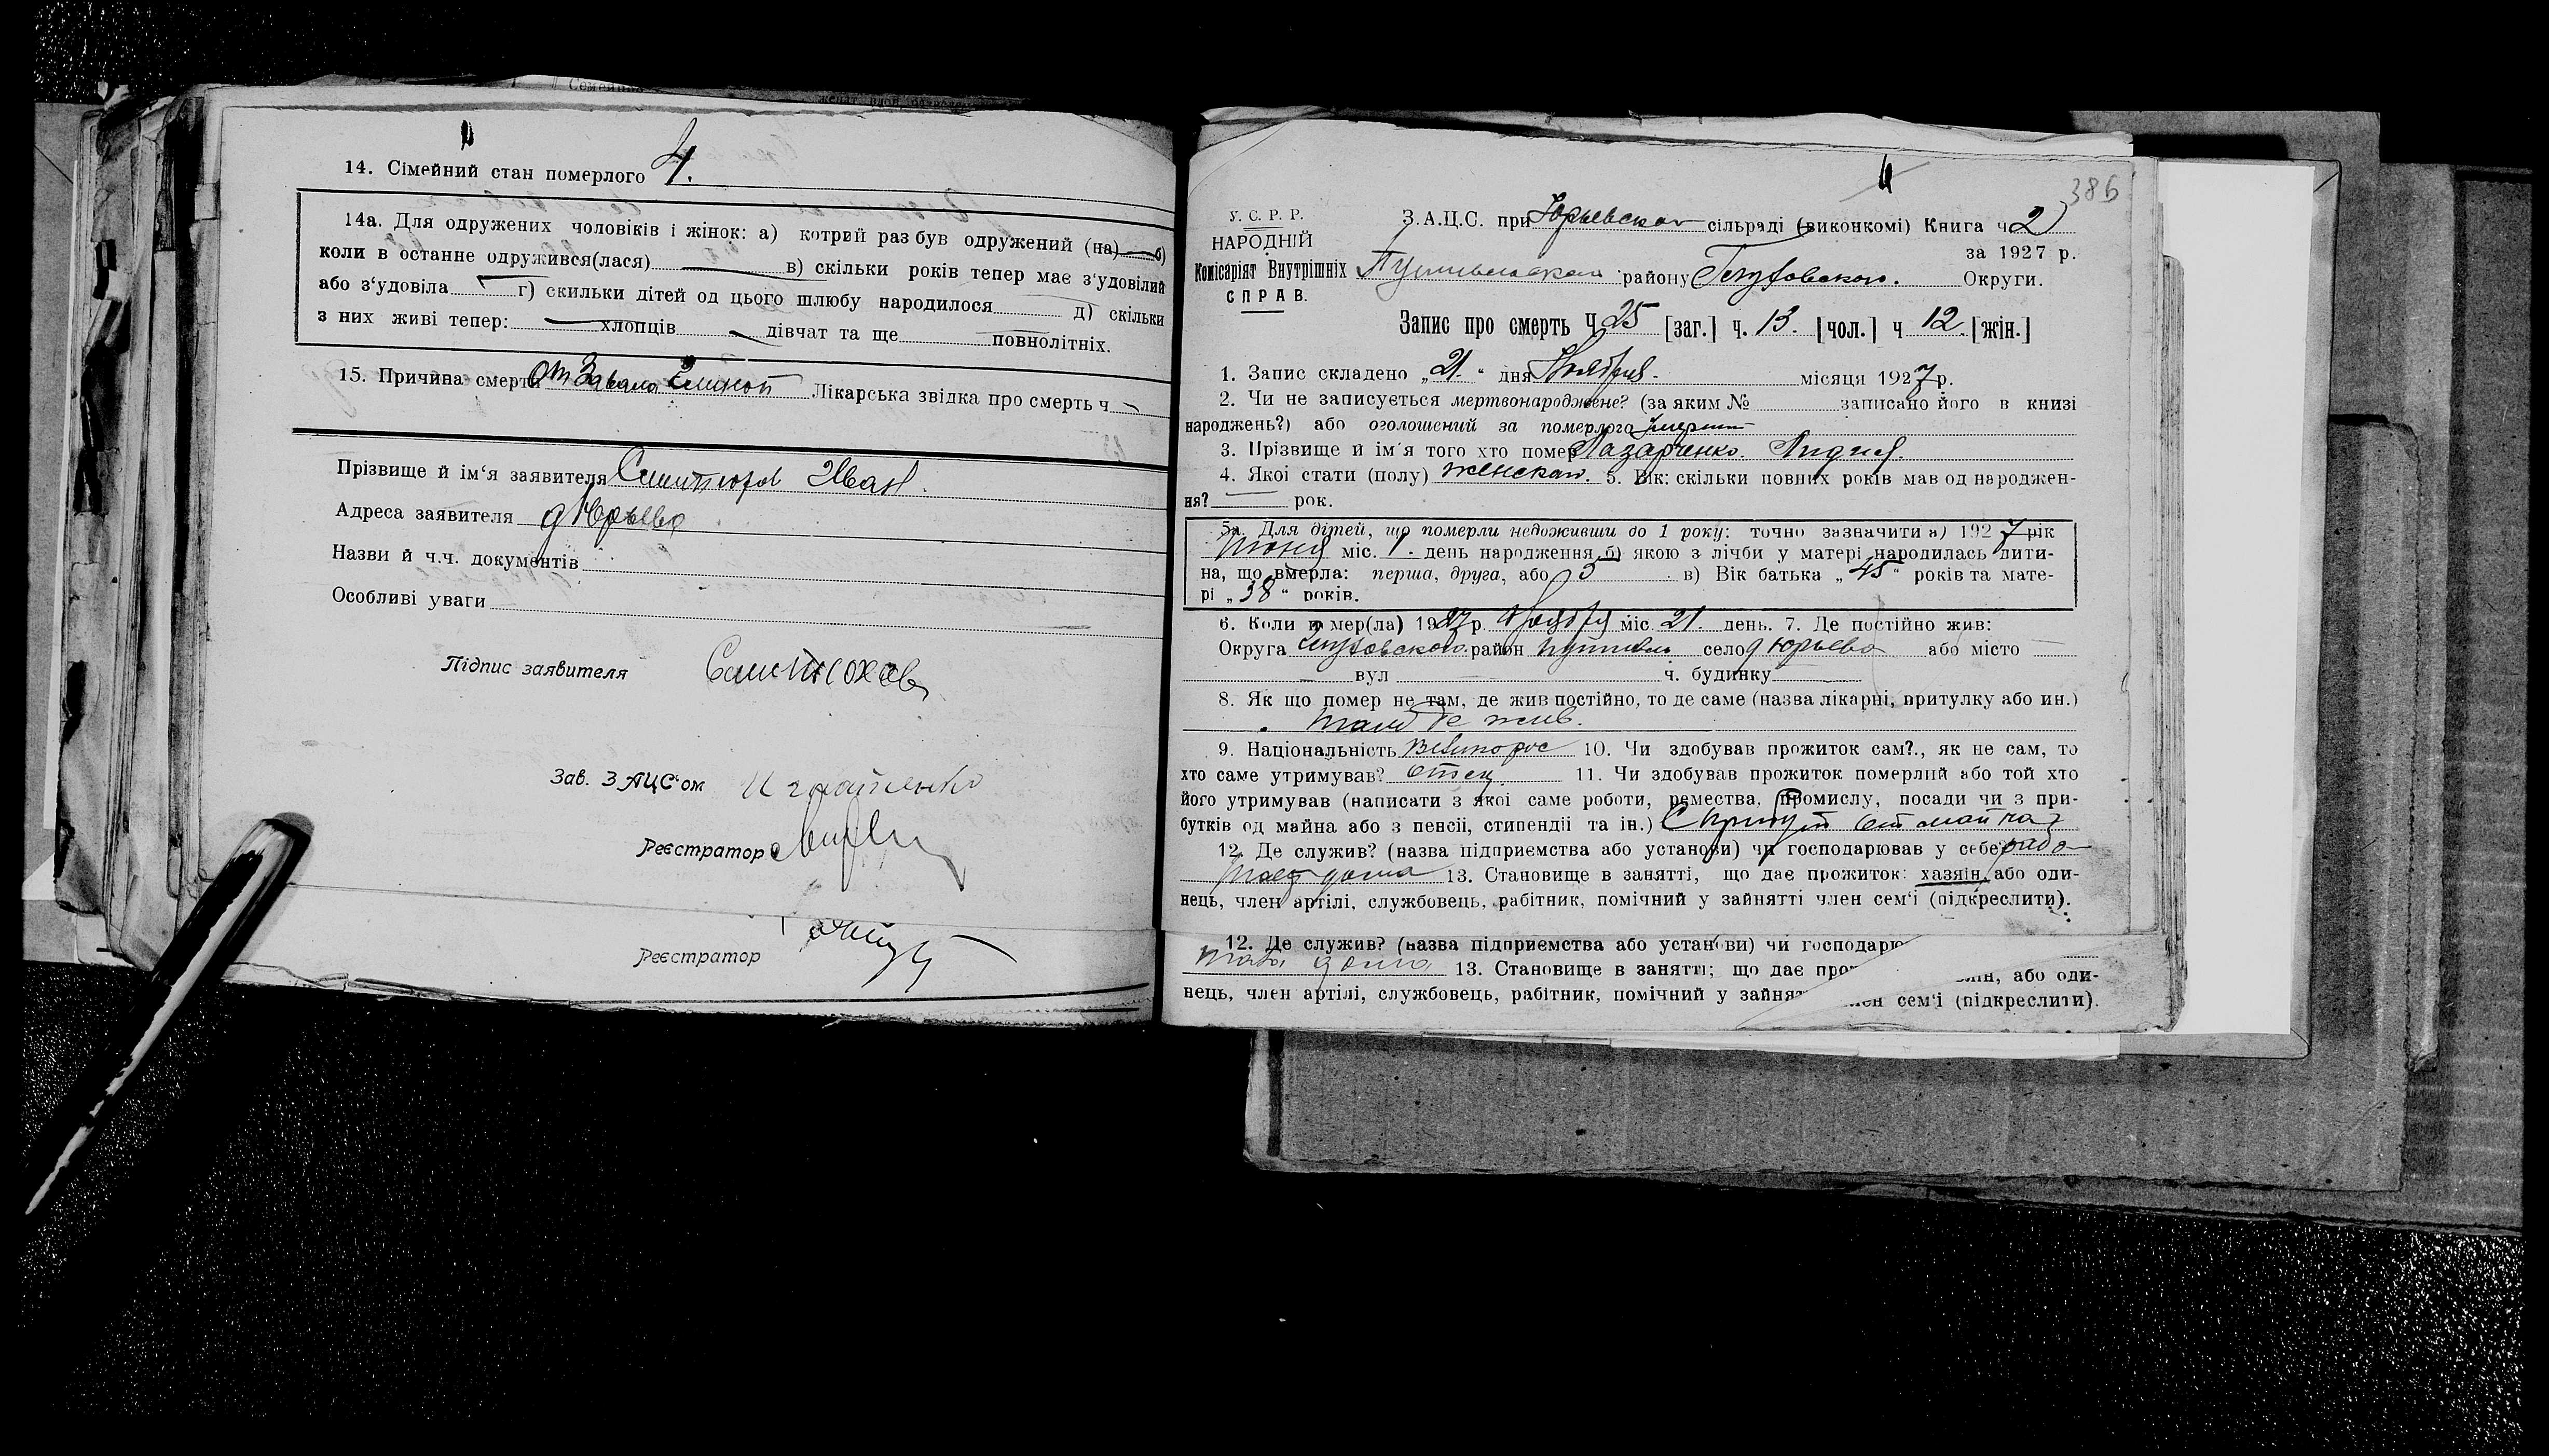 14. Сімейний стан померлого 4.
14а. Для одружених чоловіків і жінок: а) котрий раз був одружений (на) — б)
коли в останне одружився(лася) — в) скільки років тепер має з'удовілий
або з'удовіла — г) скильки дітей од цього шлюбу народилося д) скільки
з них живі тепер: — хлопців — дівчат та ще повнолітніх.
15. Причина смерти От Лікарська звідка про смерть ч —
Прізвище й ім'я заявителя Иван
Адреса заявителя д Юрьево
Назви й ч.ч. документів
Особливі уваги
Підпис заявителя
Зав. ЗАЦС'ом Игнатенко
Реєстратор
Реєстратор
386
У. С. Р. Р.
НАРОДНІЙ
Комісаріят Внутрішніх
СПРАВ.
З.А.Ц.С. при Юрьевском сільраді (виконкомі) Книга ч 2
за 1927 р.
району Глуховского. Округи.
Запис про смерть Ч 25 [заг.] ч. 13. [чол.] ч 12 [жін.]
1. Запис складено „21" дня Ноября місяця 1927 р.
2. Чи не записується мертвонароджене? (за яким № записано його в книзі
народжень?) або оголошений за померлого
3. Прізвище й ім'я того хто помер Лазарченко Лидия.
4. Якої стати (полу) женского. 5. Вік: скільки повних років мав од народжен-
ня? — рок.
5а. Для дітей, що померли недоживши до 1 року: точно зазначити а) 1927 рік
Июня міс. 1. день народження б) якою з лічби у матері народилась дити-
на, що вмерла: перша, друга, або 5 в) Вік батька „45" років та мате-
рі „38" років.
6. Коли помер(ла) 1927 р. Ноября міс. 21. день. 7. Де постійно жив:
Округа Глуховского район Путивль село д Юрьево або місто —
вул — ч. будинку —
8. Як що помер не там, де жив постійно, то де саме (назва лікарні, притулку або ин.)
там де жив.
9. Національність Великорос 10. Чи здобував прожиток сам?., як не сам, то
хто саме утримував? отец 11. Чи здобував прожиток померлий або той хто
його утримував (написати з якої саме роботи, ремества, промислу, посади чи з при-
бутків од майна або з пенсії, стипендії та ін.)
12. Де служив? (назва підприємства або установи) чи господарював у себе рабо
тает дома 13. Становище в занятті, що дає прожиток: хазяїн, або оди-
нець, член артілі, службовець, рабітник, помічний у зайнятті член сем'ї (підкреслити).
12. Де служив? (назва підприємства або установи) чи господарю
дома 13. Становище в занятті; що дає про або оди-
нець, член артілі, службовець, рабітник, помічний у зайнят сем'ї (підкреслити).